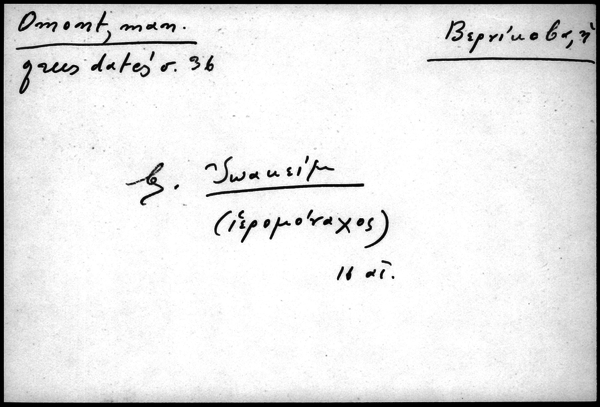 Omont, man.
grecs datés σ. 36
Βερνίκοβα, ἡ
Ἰωακείμ
(ἱερομόναχος)
16 αἰ.